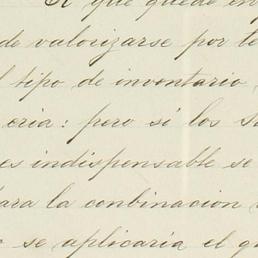 A que quede en
de valorizarse por
l tipo de inventario
cria: pero si los
es indispensable se
ara la conbinacion
se aplicaria el